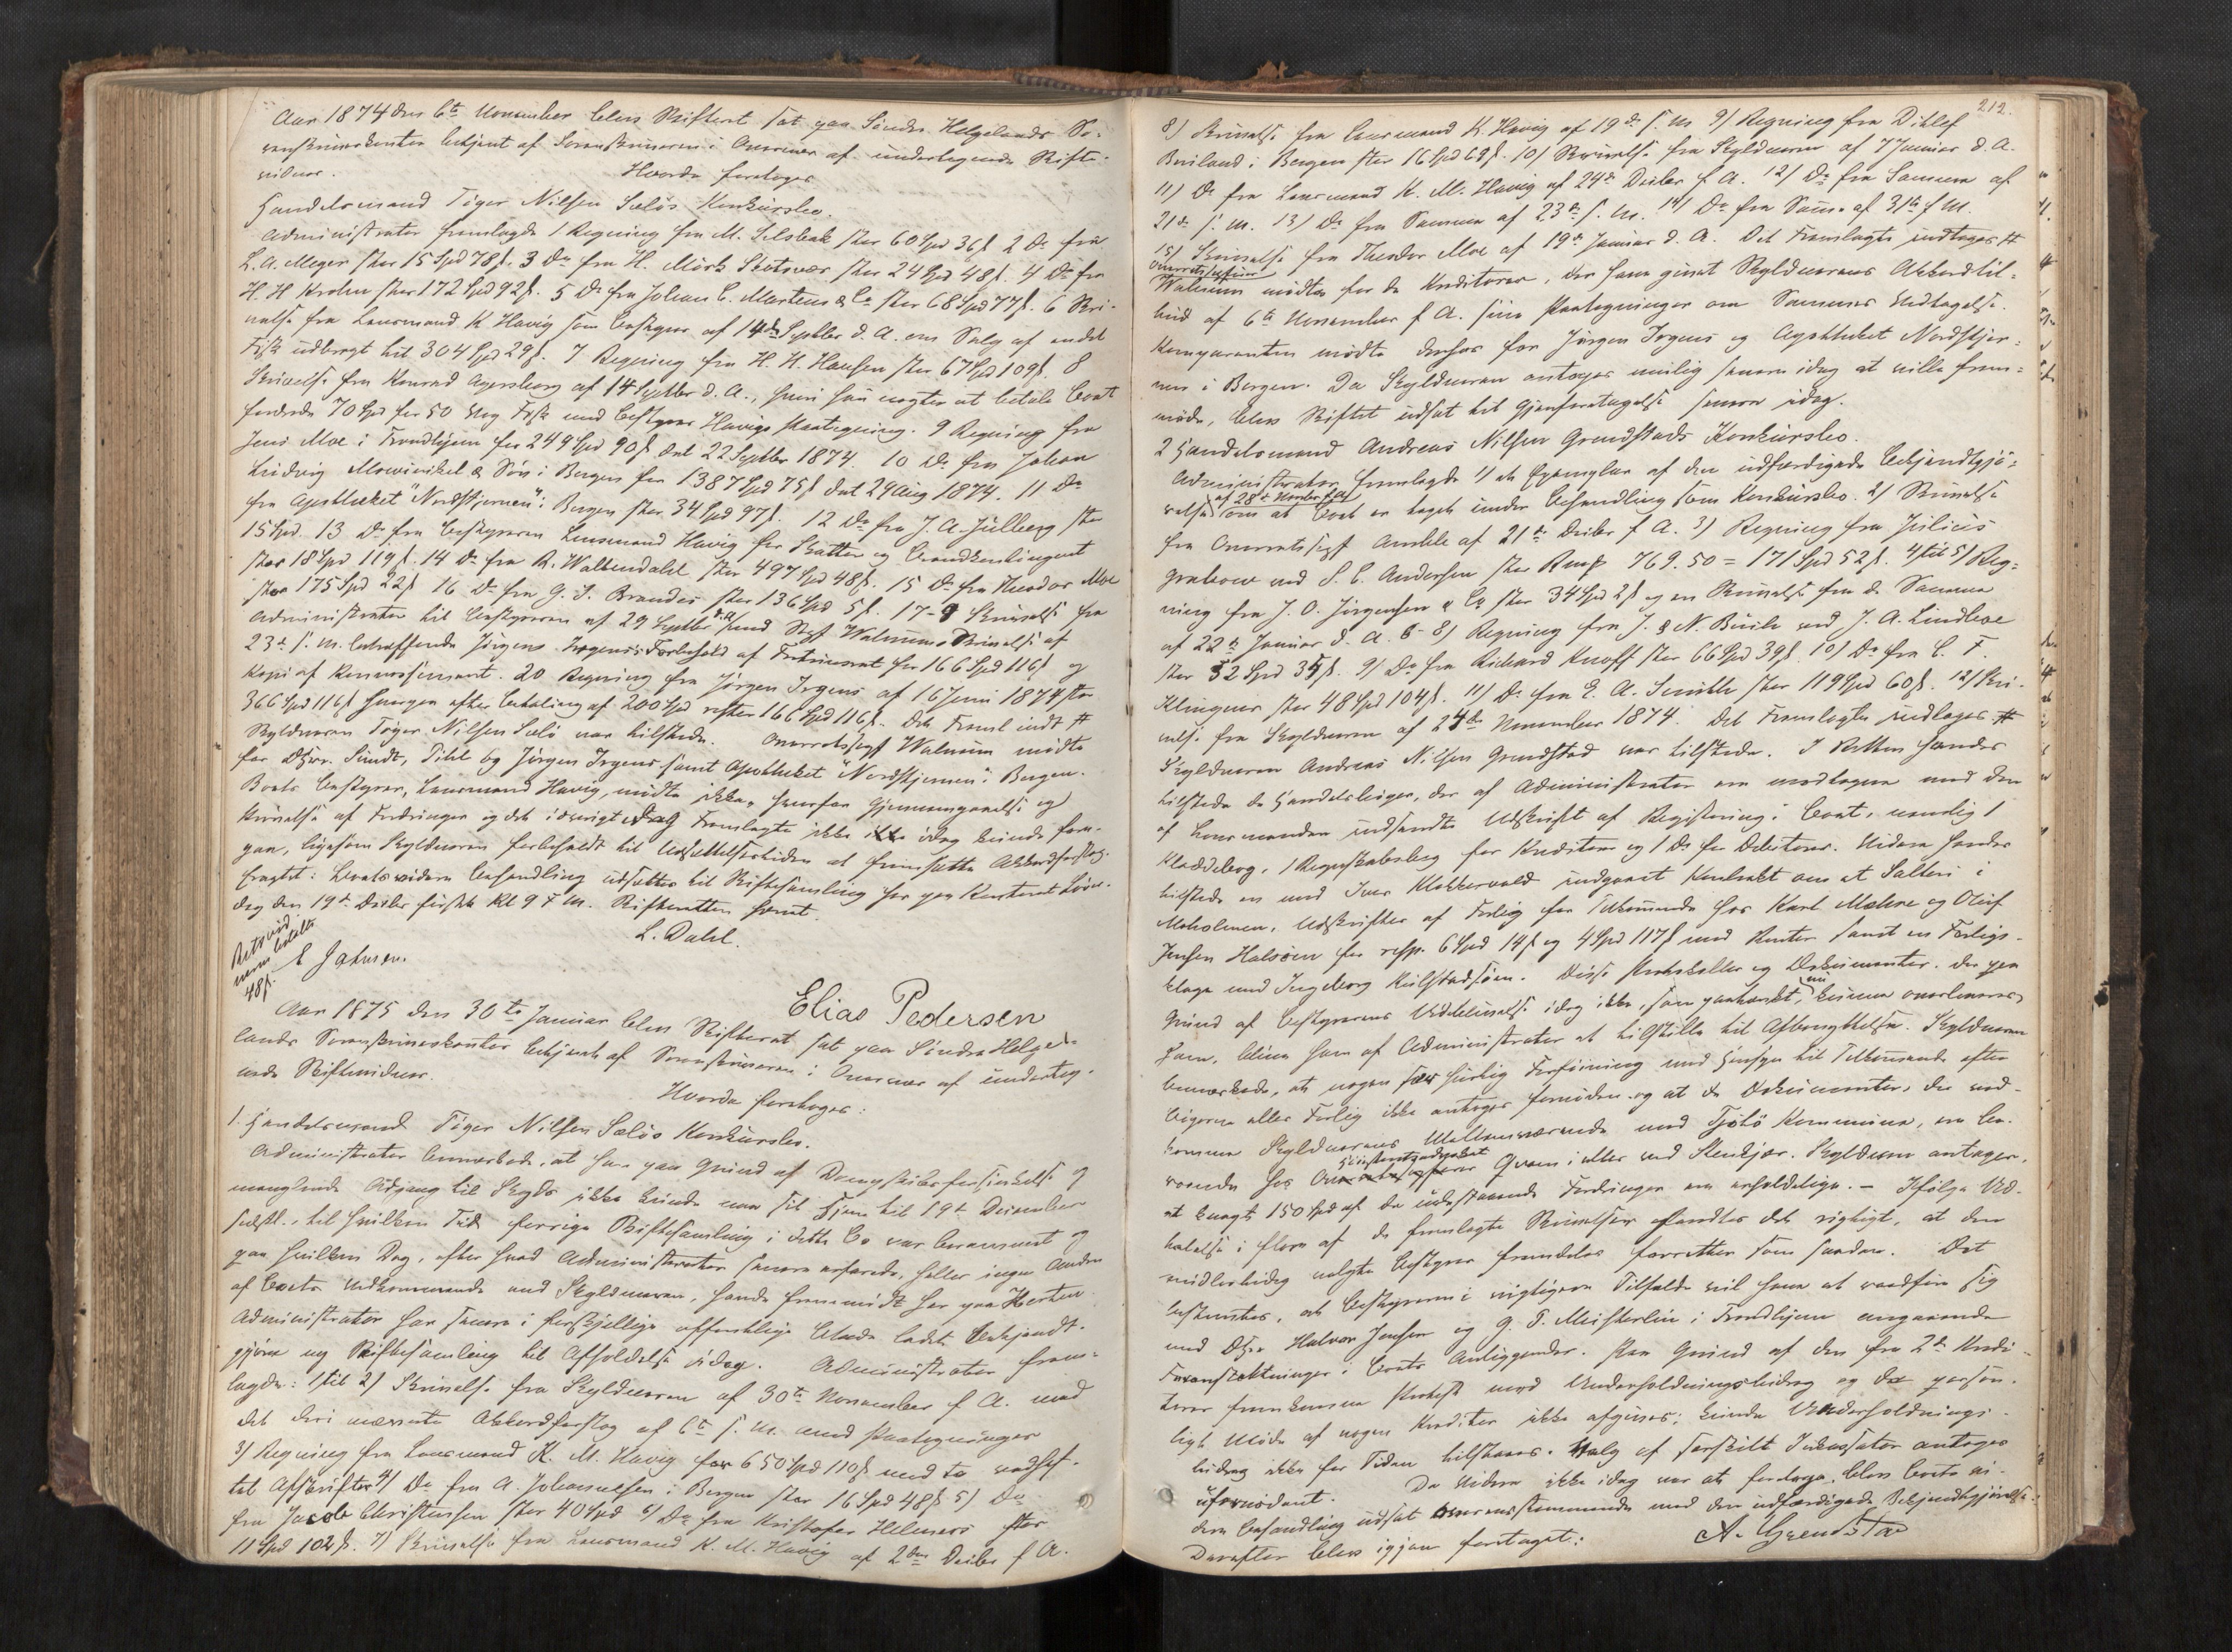 Aar 1874 den 6te November blev Skifteret sat paa Søndre Helgelands So-
renskriverkontor betjent af Sorenskriveren i Overvær af undertegnede Skifte-
vidner. Hvorda foretoges
Handelsmand Tøger Nilsen Sæløs Konkursbo.
Administrator fremlagde 1 Regning fra M. Selsbak stor 60 Spd 36 ß 2 Do fra
L. A. Meyer stor 15 Spd 78 ß. 3 Do fra H. Mørk Skotsvær stor 24 Spd 48 ß. 4 Do fra
H. H Krohn stor 172 Spd 92 ß. 5 Do fra Johan C. Martens & Co stor 68 Spd 77 ß. 6 Skri-
velse fra Lensmand K Havig som Bestyrer af 14de Septbr d. A. om Salg af endel
Fisk udbragt til 304 Spd 29 ß. 7 Regning fra H. H. Hansen stor 67 Spd 109 ß. 8
Skrivelse fra Konrad Agersborg af 14 Septbr d. A., hvori han negter at betale Boet
fordrede 70 Spd for 50 Vog Fisk med Bestyrer Havigs Paategning. 9 Regning fra
Jens Moe i Trondhjem for 249 Spd 90 ß dat 22 Septbr 1874. 10 Do fra Johan
Ludvig Mowinckel & Søn i Bergen for 1387 Spd 75 ß dat 29 Aug 1874. 11 Do
fra Apotheket "Nordstjernen" i Bergen stor 34 Spd 97 ß. 12 Do fra J. A. Jülberg stor
15 Spd. 13 Do fra Bestyreren Lensmand Havig for Skatter og Brandkontingent
stor 18 Spd 119 ß. 14 Do fra R. Walbendahl stor 497 Spd 48 ß. 15 Do fra Theodor Moe
stor 175 Spd 22 ß 16 Do fra G. S. Brandes stor 136 Spd 5 ß. 17-9 Skrivelse fra
Administrator til Bestyreren af 29 Septbr d. A. med Sagf Walnums Skrivelse af
23de s. M. betræffende Jørgens Irgens's Forbehold af Fortrinsret for 166 Spd 116 ß og
Kopi af Konnossement. 20 Regning fra Jørgen Irgens af 16 Juni 1874 stor
366 Spd 116 ß hvorpaa efter Betaling af 200 Spd rester 166 Spd 116 ß. Det Freml indt #
Skyldneren Tøger Nilsen Sælø var tilstede. Overretssagf Walnum mødte
for DHrr. Sundt, Pihl og Jørgen Irgens samt Apotheket "Nordstjernen" i Bergen.
Boets Bestyrer, Lensmand Havig, mødte ikke, hvorfor Gjennemgaaelse og
Prøvelse af Fordringer og det iøvrigt idag Fremlagte ikke idag kunde fore-
gaa, ligesom Skyldneren forbeholdt til Udsættelsestiden at fremsætte Akkordforslag.
Eragtet: Boets videre Behandling udsættes til Skiftesamling her paa Kontoret Lør-
dag den 19de Decbr førstk Kl 9 F M. Skifteretten hævet.
L. Dahl.
Retsvid
nerne betalte
48 ß.
E Johnsen.
Elias Pedersen
Aar 1875 den 30te Januar blev Skifteret sat paa Søndre Helge-
lands Sorenskriverkontor betjent af Sorenskriveren i Overvær af underteg-
nede Skiftevidner.
Hvorda foretoges:
1. Handelsmand Tøger Nilsen Sæløs Konkursbo.
Administrator bemærkede, at han paa Grund af Dampskibsforsinkelse og
manglende Adgang til Skyds ikke kunde naa sit Hjem til 19de December
sidstl., til hvilken Tid forrige Skiftesamling i dette Bo var berammet og
paa hvilken Dag, efter hvad Administrator senere erfarede, heller ingen Anden
af Boets Vedkommende end Skyldneren, havde fremmødt her paa Kontor.
Administrator har senere i forskjellige offentlige Blade ladet bekjendt-
gjøre ny Skiftesamling til Afholdelse idag. Administrator frem-
lagde: 1 til 2) Skrivelse fra Skyldneren af 30te November f A. med
det deri nævnte Akkordforslag af 6te s. M. med Paategninger
3) Regning fra Lensmand K. M. Havig for 650 Spd 110 ß med to vedhef-
tet Afskrifter 4) Do fra A. Johannessen i Bergen stor 16 Spd 48 ß 5) Do
fra Jacob Christensen stor 40 Spd 6) Do fra Kristofer Helmers stor
11 Spd 102 ß. 7) Skrivelse fra Lensmand K. M. Havig af 2den Decbr f A.
212.
8) Skrivelse fra Lensmand K. Havig af 19de s. M 9) Regning fra Ditlef
Builand i Bergen stor 16 Spd 69 ß. 10) Skrivelse fra Skyldneren af 7 Januar d. A.
11) Do fra Lensmand K. M. Havig af 24de Decbr f A. 12) Do fra Samme af
21de s. M. 13) Do fra Samme af 23de s. M. 14) Do fra Samme af 31te f M.
15) Skrivelse fra Theodor Moe af 19de Januar d. A. Det Fremlagte indtages #
Overretssagfører
Walnum mødte for de Kreditorer, der have givet Skyldnerens Akkordtil-
bud af 6te November f A. sine Paategninger om Sammes Vedtagelse.
Komparenten mødte derhos for Jørgen Irgens og Apotheket Nordstjer-
nen i Bergen. Da Skyldneren antages mulig senere idag at ville frem-
møde, blev Skiftet udsat til Gjenforetagelse senere idag.
2 Handelsmand Andreas Nilsen Grendstads Konkursbo.
Administrator fremlagde 1) et Exemplar af den udfærdigede Bekjendtgjø-
af 28de Novbr f A
relse om at Boet er taget under Behandling som Konkursbo. 2) Skrivelse
fra Overretssagf Amble af 21de Decbr f A. 3) Regning fra Julius
Grabow ved S. C. Andersen stor Rmp 769.50 = 171 Spd 52 ß. 4 til 5) Reg-
ning fra J. O. Jørgensen & Co stor 34 Spd 2 ß og en Skrivelse fra de Samme
af 22de Januar d. A. 6-8) Regning fra J. & N. Buile ved J. A. Lindboe
stor 52 Spd 35 ß. 9) Do fra Richard Knoff stor 66 Spd 39 ß. 10) Do fra C. F.
Klingner stor 48 Spd 104 ß. 11) Do fra E. A. Smith stor 119 Spd 60 ß. 12) Skri-
velse fra Skyldneren af 24de November 1874. Det Fremlagte indtages #
Skyldneren Andreas Nilsen Grendstad var tilstede. I Retten havdes
tilstede de Handelsbøger, der af Administrator ere modtagne med den
af Lensmanden indsendte Udskrift af Registrering i Boet, nemlig 1
Kladdebog, 1 Regnskabsbog for Kreditorer og 1 Do for Debitorer. Videre havdes
tilstede en med Iver Klokkervold indgaaet Kontrakt om et Salteri i
Moholmen, Udskrifter af Forlig for Tilkommende hos Karl Mohne og Oluf
Jensen Halsøen for resp. 6 Spd 14 ß og 4 Spd 117 ß med Renter samt en Forligs-
klage mod Ingeborg Kulstadsøen. Disse Protokoller og Dokumenter, der paa
Grund af Bestyrerens Udeblivelse idag ikke, som paatænkt, nu kunne overleveres
ham, blive ham af Administrator at tilstille til Afbenyttelse. Skyldneren
bemærkede, at nogen særskilt Forføining med Hensyn til Tilkommende efter
Bøgerne eller Forlig ikke antages fornøden og at de Dokumenter, der ved-
komme Skyldnerens Mellemværende med Tjøtø Kommune, ere be-
Høiesteretsadvokat
roende hos Qvam i eller ved Stenkjær. Skyldneren antager,
at knapt 150 Spd af de udestaaende Fordringer ere erholdelige. - Ifølge Ud-
talelse i flere af de fremlagte Skrivelser ansaaes det rigtigt, at den
midlertidig valgte Bestyrer fremdeles forretter som saadan. Det
bestemtes, at Bestyreren i vigtigere Tilfælde vil have at raadføre sig
med DHrr Halvor Jensen og G. T. Meisterlin i Trondhjem angaaende
Foranstaltninger i Boets Anliggender. Paa Grund af den fra 2de Kredi-
torer fremkomne Protest mod Underholdningsbidrag og da person-
ligt Møde af nogen Kreditor ikke afgives, kunde Underholdnings-
bidrag ikke for Tiden tilstaaes. Valg af særskilt Inkassator antoges
ufornødent. Da Videre ikke idag var at foretage, blev Boets vi-
dere Behandling udsat overensstemmende med den udfærdigede Bekjendtgjørelse:
Derefter blev igjen foretaget: A. Grendstad